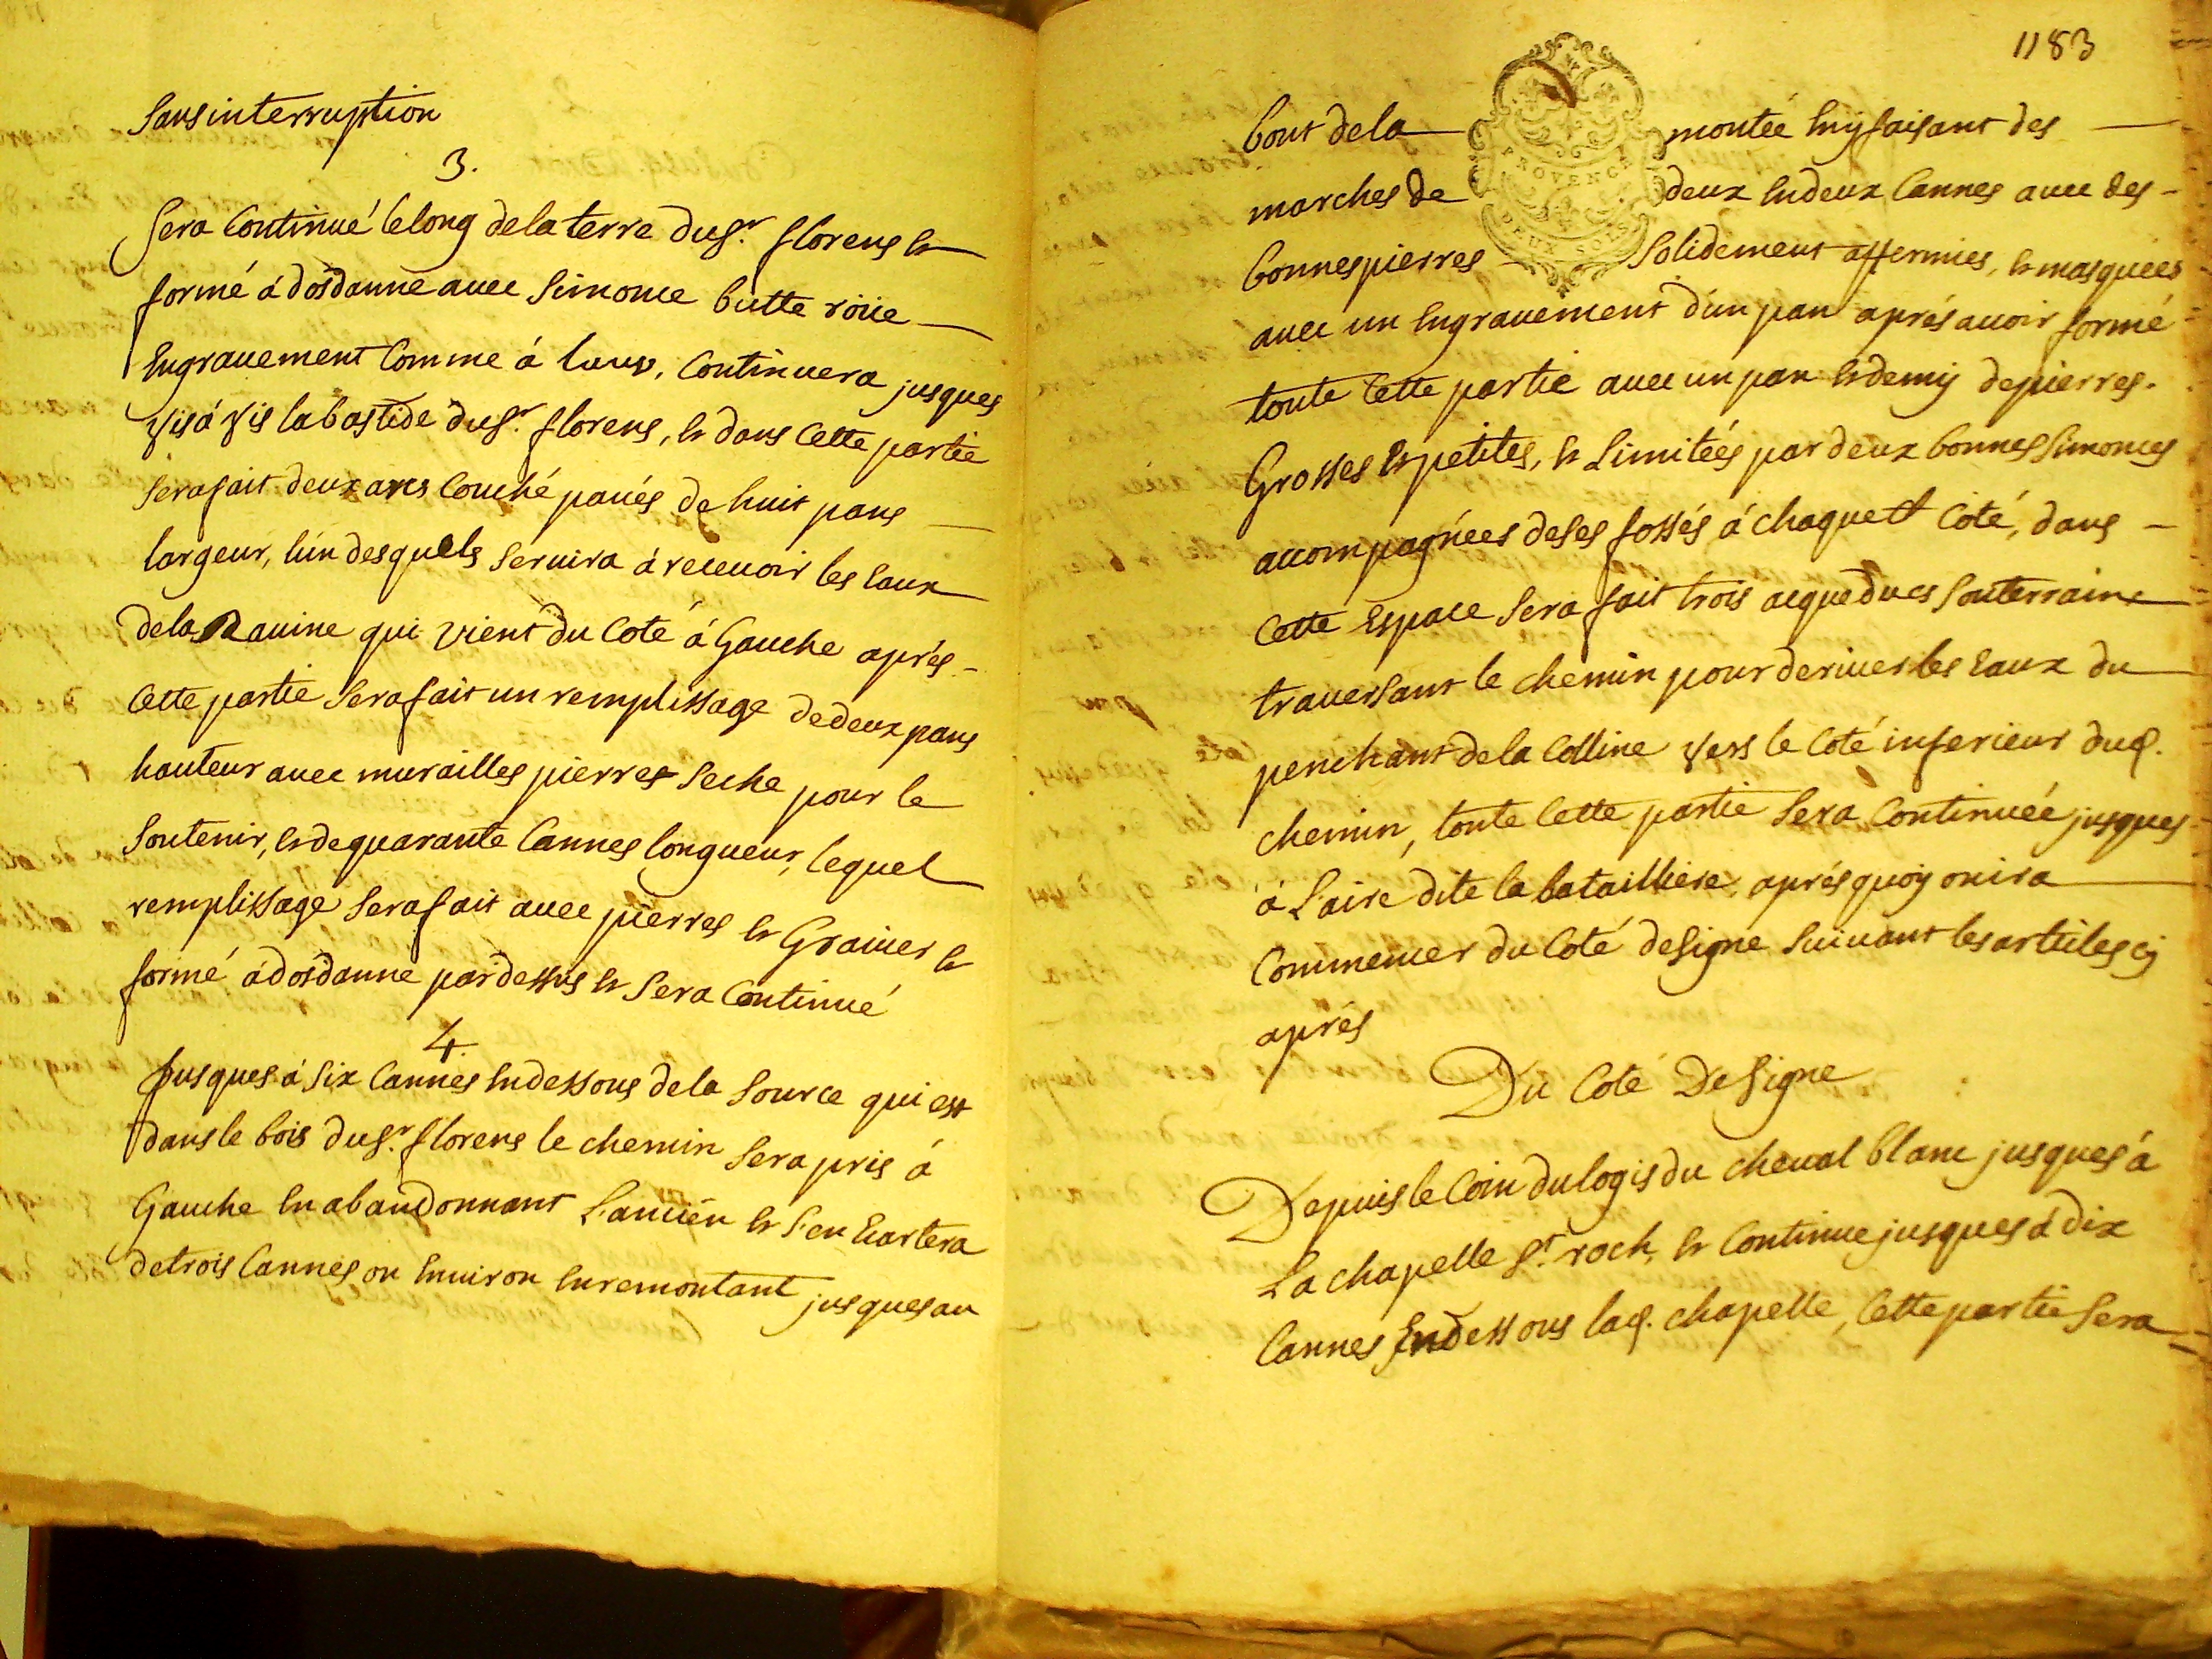 Sans interruption
3.
Sera Continué le long de la terre du Sr. florens et
formé à dos danne avec Simouce butte roüe
Engravement Comme à
Vis à Vis la bastide du Sr. florens, et dans Cette partie
sera fait deux arcs Couché pavés de huit pans
largeur, lun desquels Servira à recevoir les Eaux
de la Ravine qui vient du Coté à Gauche aprés
Cette partie Sera fait un remplissage de deux pans
hauteur avec murailles pierres Seche pour le
Soutenir, et de quarante Cannes longueur, lequel
remplissage Sera fait avec pierres et Gravier et
formé à dos danne par dessus et Sera Continué
4.
Jusques à Six Cannes En dessous de la Source qui est
dans le bois du Sr. florens le chemin Sera pris à
Gauche En abandonnant L'ancien et S'en Ecartera
de trois Cannes ou Environ En remontant jusques au
1183
bout de la montée En y faisant des
PROVENCE
marches de deux En deux Cannes avec des
DEUX SOLS
bonnes pierres Solidement affermies, et masquées
avec un Engravement d'un pan aprés avoir formé
toute Cette partie avec un pan et demy de pierres
Grosses et petites, et Limitées par deux bonnes Simouces
accompagnées de Ses fossés à chaque Coté, dans
Cette Espace Sera fait trois acqueducs Souterrains
traversant le chemin pour deriver les Eaux du
penchant de la Colline Vers le Coté inferieur dud.
chemin, toute Cette partie Sera Continuée jusques
à L'aire dite la batailliere, aprés quoy on ira
Commencer du Coté de Signe Suivant les articles cy
aprés
Du Coté De Signe
Depuis le Coin du logis du cheval blanc jusques à
La chapelle St. roch, et Continue jusques à dix
Cannes En dessous lad. chapelle, Cette partie Sera